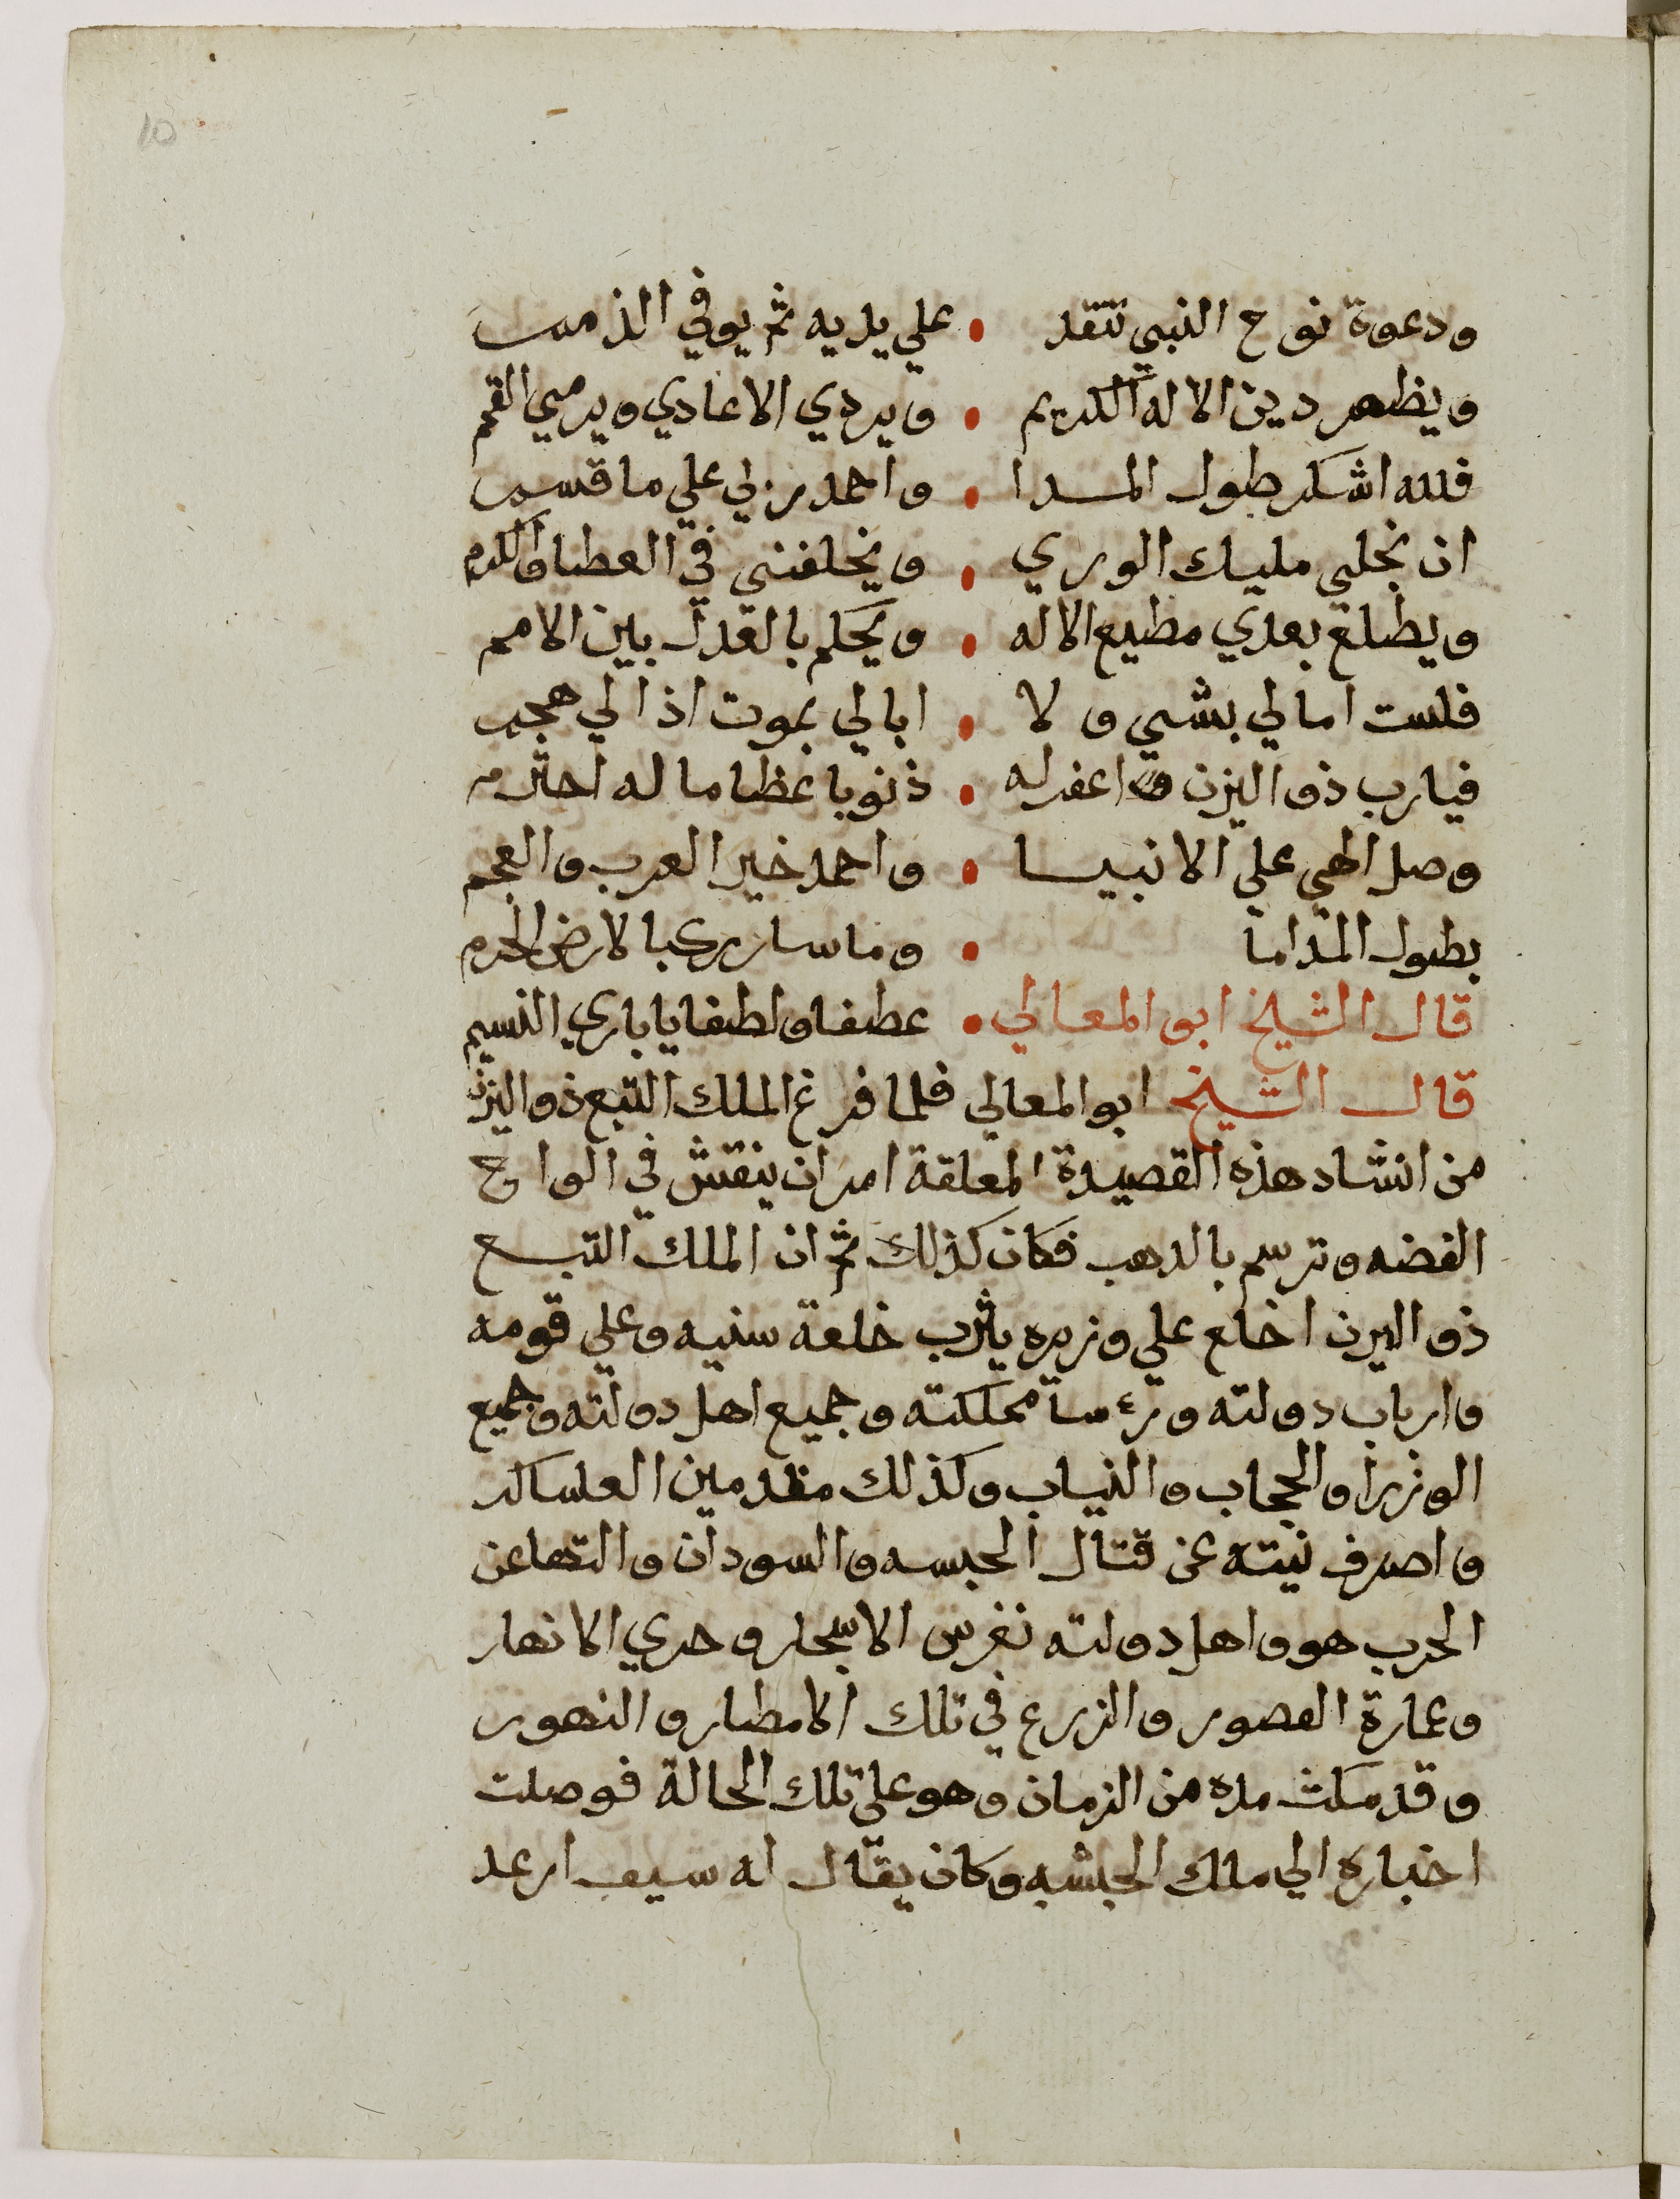 10
ودعوة نوح النبي تنقد • علي يديه ثم يوفي الذمم
ويظهر دين الاله الكريم • ويردي الاعادي ويرمي القمم
فلله اشكر طول المدا • واحمد ربي علي ما قسم
ان نجلي مليك الوري • ويخلفني في العطا والكرم
ويطلع بعدي مطيع الاله • ويحكم بالعدل بين الامم
فلست امالي بشي ولا • ابالي بموت اذا لي هجم
فيارب ذو اليزن اغفر له • ذنوبا عظاما له احترم
وصل الهي علي الانبيا • واحمد خير العرب والعجم
بطول المداما • وما سار ركب بالارض الحرم
قال الشيخ ابو المعالي • عطفا ولطفا يا باري النسيم
قال الشيخ ابو المعالي فلما فرغ الملك التبع ذو اليزن
من انشاد هذه القصيدة المعلقة امر ان ينقش في الواح
الفضه وترسم بالدهب فكان كذلك ثم ان الملك التبع
ذو اليزن اخلع علي وزيره يثرب خلعة سنيه وعلي قومه
وارباب دولته ورءسا مملكته وجميع اهل دولته وجميع
الوزرا والحجاب والنياب وكذلك مقدمين العساكر
واصرف نيته عن قتال الحبسه والسودان والتها عن
الحرب هو واهل دولته نغرس الاسجار وجري الانهار
وعمارة القصور والزرع في تلك الامطار والنهور
وقد مكث مده من الزمان وهو علي تلك الحالة فوصلت
اخباره الي ملك الحبشه وكان يقال له سيف ارعد